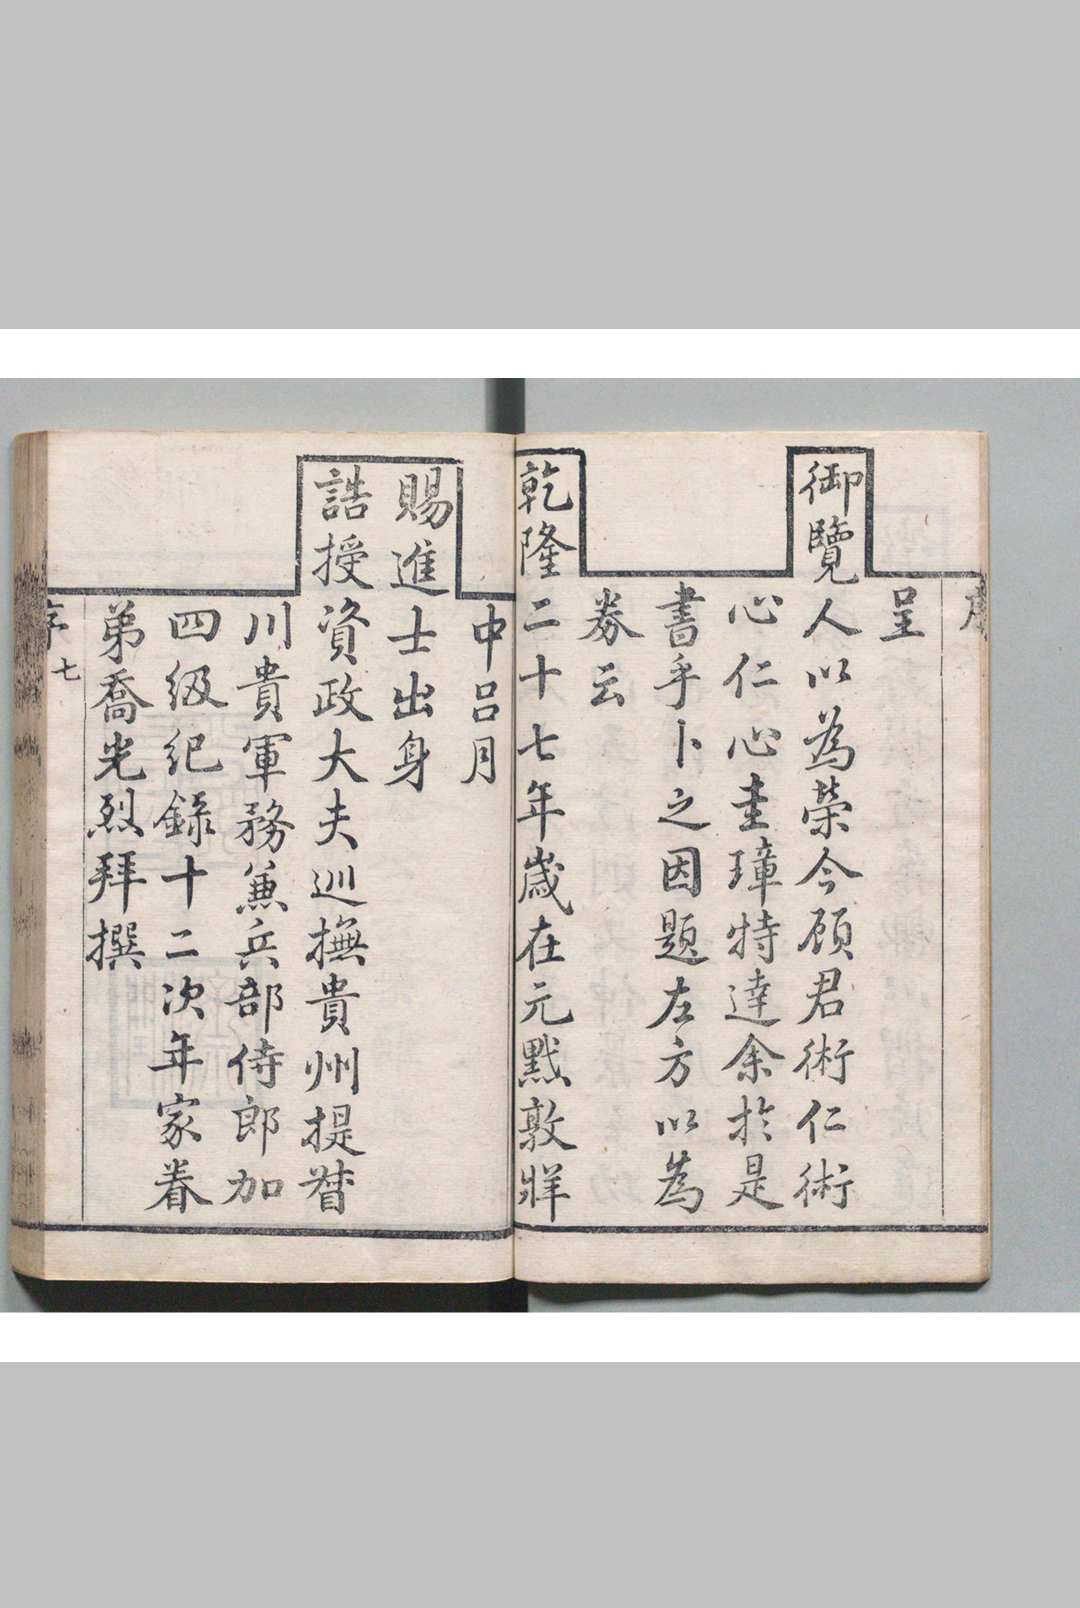 呈
御覽人以為榮今顧君術仁術
心仁心圭璋特達余於是
書乎卜之因題左方以為
券云
乾隆二十七年歲在元黓敦牂
中呂月
賜進士出身
誥授資政大夫巡撫貴州提督
川貴軍務兼兵部侍郎加
四級紀錄十二次年家眷
弟喬光烈拜撰
序 七